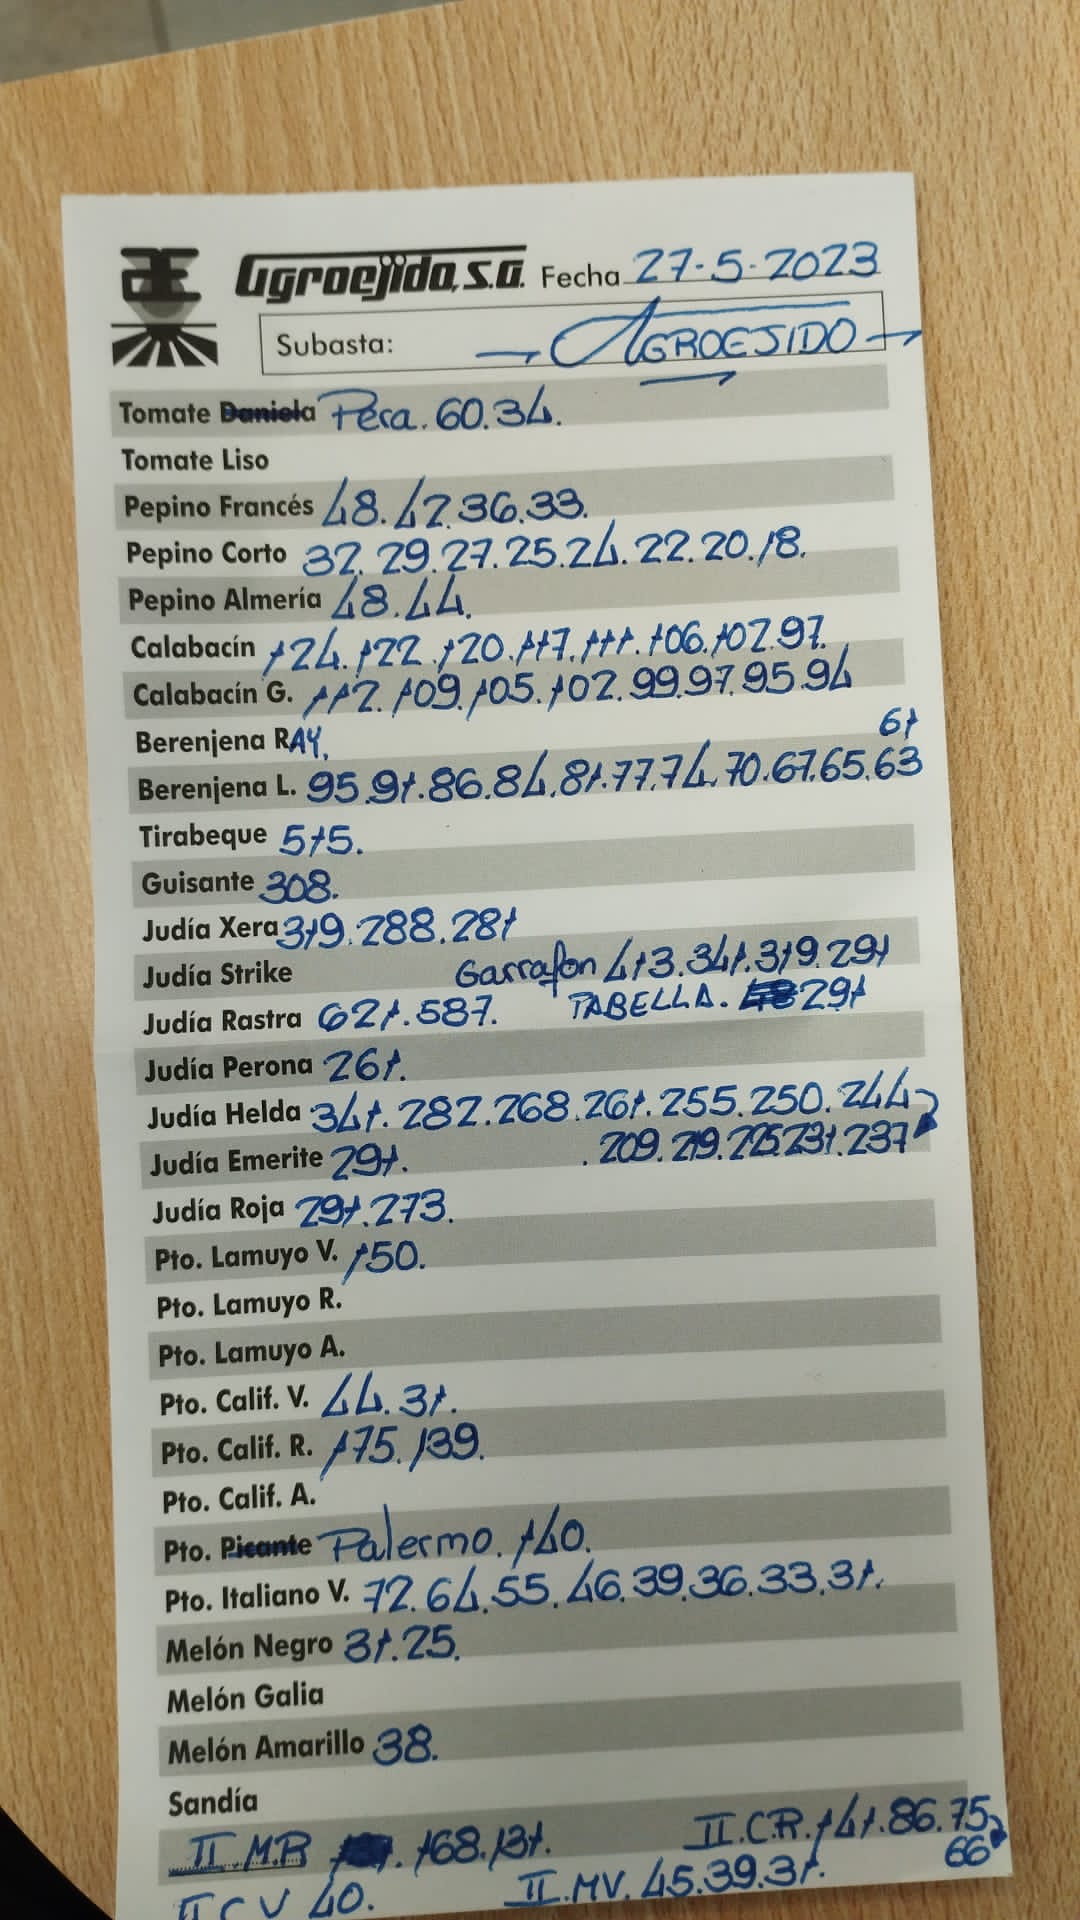 Agroejido, S.A. Fecha 27-5-2023
Subasta: AGROEJIDO
Tomate Daniela Pera. 60.34.
Tomate Liso
Pepino Francés 48.42.36.33.
Pepino Corto 32.29.27.25.24.22.20.18.
Pepino Almería 48.44.
Calabacín 124.122.120.117.111.106.102.97.
Calabacín G. 112.109.105.102.99.97.95.94
Berenjena RAY.
61
Berenjena L. 95.91.86.84.81.77.74.70.67.65.63
Tirabeque 515.
Guisante 308.
Judía Xera 319.288.281
Judía Strike Garrafon 413.341.319.291
Judía Rastra 621.587. TABELLA. 291
Judía Perona 261.
Judía Helda 341.282.268.261.255.250.244
Judía Emerite 291. .209.219.225.231.237
Judía Roja 291.273.
Pto. Lamuyo V. 150.
Pto. Lamuyo R.
Pto. Lamuyo A.
Pto. Calif. V. 44.31.
Pto. Calif. R. 175.139.
Pto. Calif. A.
Pto. Picante Palermo. 140.
Pto. Italiano V. 72.64.55.46.39.36.33.31.
Melón Negro 31.25.
Melón Galia
Melón Amarillo 38.
Sandía
II M.R . 168.131. II.C.R. 141.86.75
66
II C V 40. II.MV. 45.39.31.